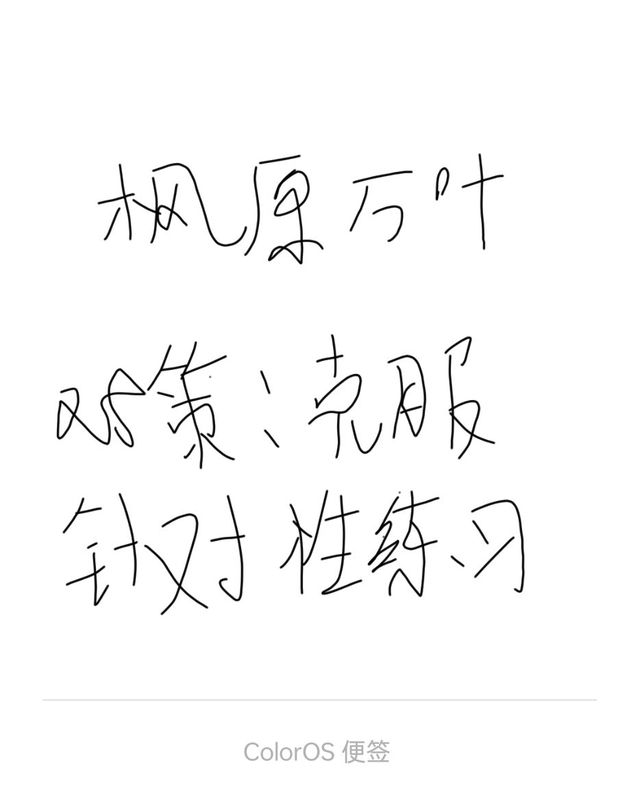 枫原万叶
对策：克服
针对性练习
ColorOS 便签